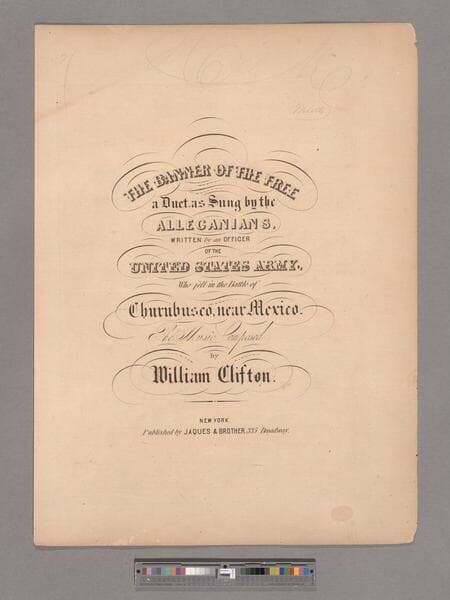 THE BANNER OF THE FREE
a Duet. as Sung by the
ALLEGANIANS,
WRITTEN by an OFFICER
OF THE
UNITED STATES ARMY,
Who fell in the Battle of
Churubusco, near Mexico.
The Music Composed
by
William Clifton.
NEW YORK
Published by JAQUES & BROTHER, 335 Broadway.